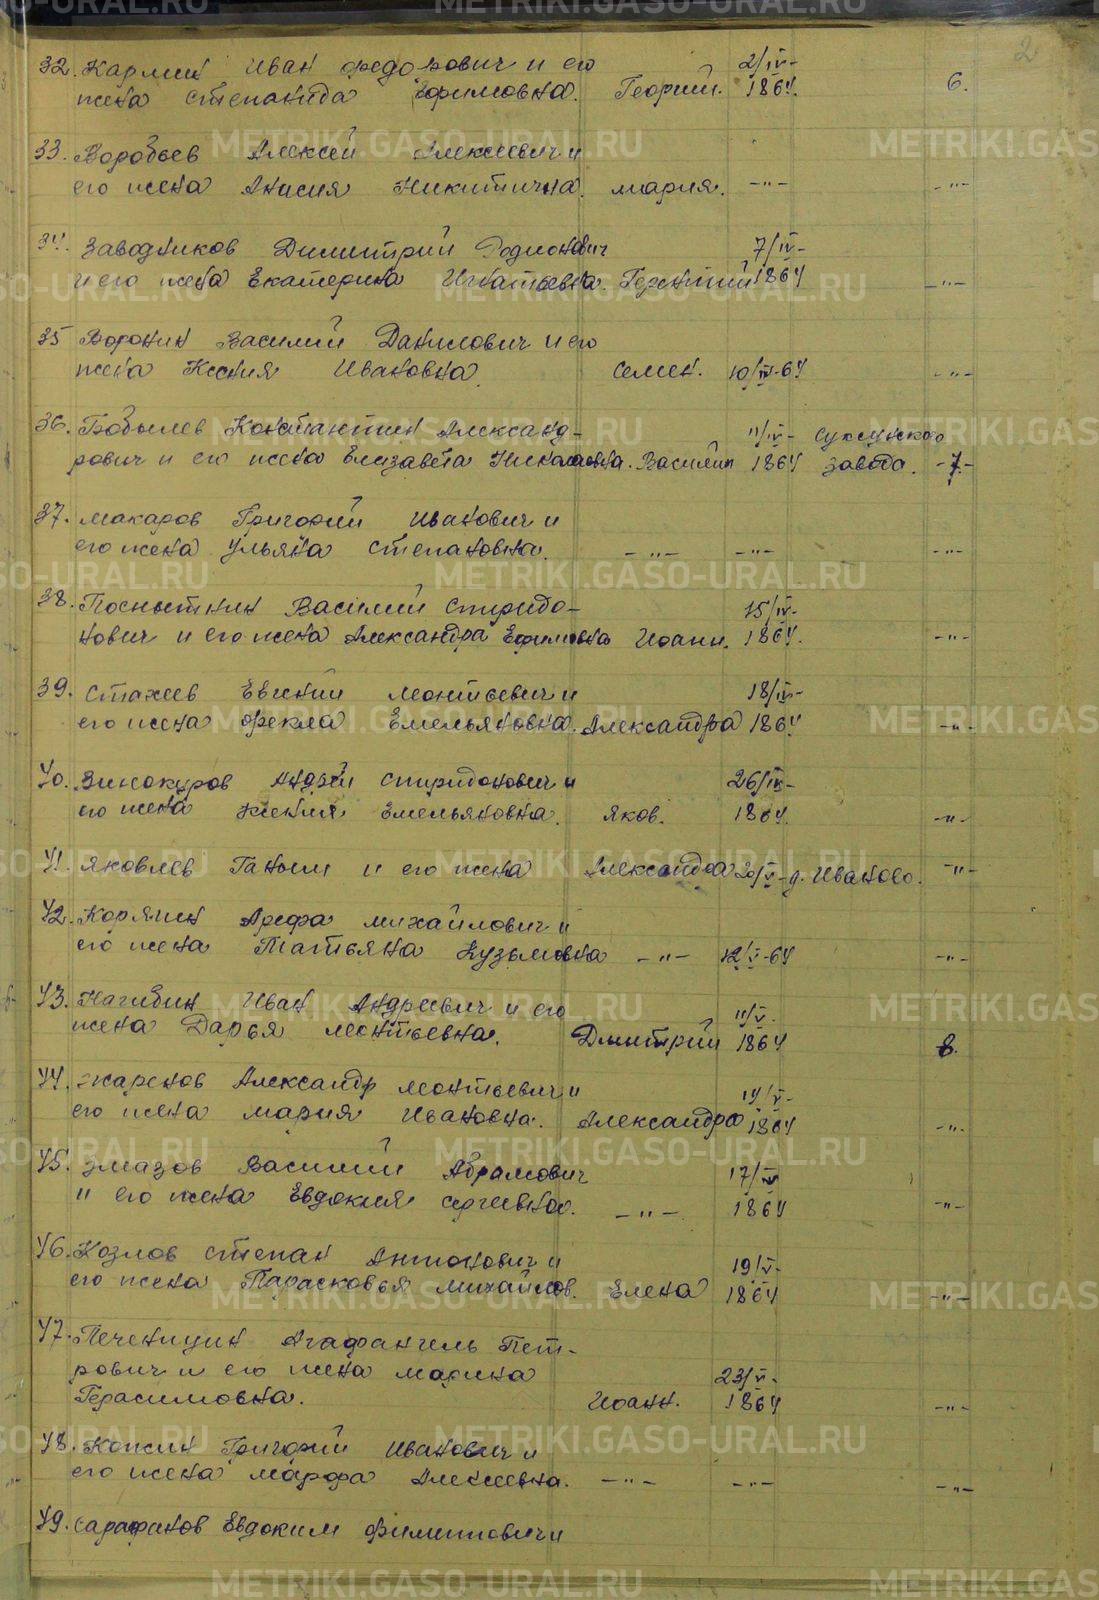 2
32. Кармин Иван Федорович и его 2/IV-
жена Степанида Ефимовна. Георгий. 1864. 6.
33. Воробьев Алексей Алексеевич и
его жена Анисия Никитична. Мария. -"- -"-
34. Заводчиков Димитрий Родионович 7/IV-
и его жена Екатерина Игнатьевна. Терентий 1864 -"-
35 Воронин Василий Данилович и его
жена Ксения Ивановна. Семен. 10/IV-64 -"-
36. Бобылев Константин Александ- 11/IV- Суксунского
рович и его жена Елизавета Николаевна. Василий 1864 завода. -7-
37. Макаров Григорий Иванович и
его жена Ульяна Степановна. -"- -"- -"-
38. Посныткин Василий Спиридо- 15/IV-
нович и его жена Александра Ефимовна Иоанн. 1864. -"-
39. Стахеев Евгений Леонтьевич и 18/IV-
его жена Фекла Емельяновна. Александра 1864 -"-
40. Винокуров Андрей Спиридонович и 26/IV-
его жена Ксения Емельяновна. Яков. 1864. -"-
41. Яковлев Ганым и его жена Александра 20/V- д. Иваново. -"-
42. Корякин Арефа Михайлович и
его жена Татьяна Кузьмовна -"- 12/V-64 -"-
43. Нагибин Иван Андреевич и его 11/V-
жена Дарья Леонтьевна. Дмитрий 1864 8.
44. Жаренов Александр Леонтьевич и 14/V-
его жена Мария Ивановна. Александра 1864 -"-
45. Эмазов Василий Абрамович 17/IV
и его жена Евдокия Сергеевна. -"- 1864 -"-
46. Козлов Степан Антонович и 19/V-
его жена Парасковья Михайлов. Елена 1864 -"-
47. Печеницин Агафангель Пет-
рович и его жена Марина 23/V-
Герасимовна. Иоанн. 1864 -"-
48. Кокшин Григорий Иванович и
его жена Марфа Алексеевна. -"- -"- -"-
49. Сарафанов Евдоким Филиппович и
METRIKI.GASO-URAL.RU